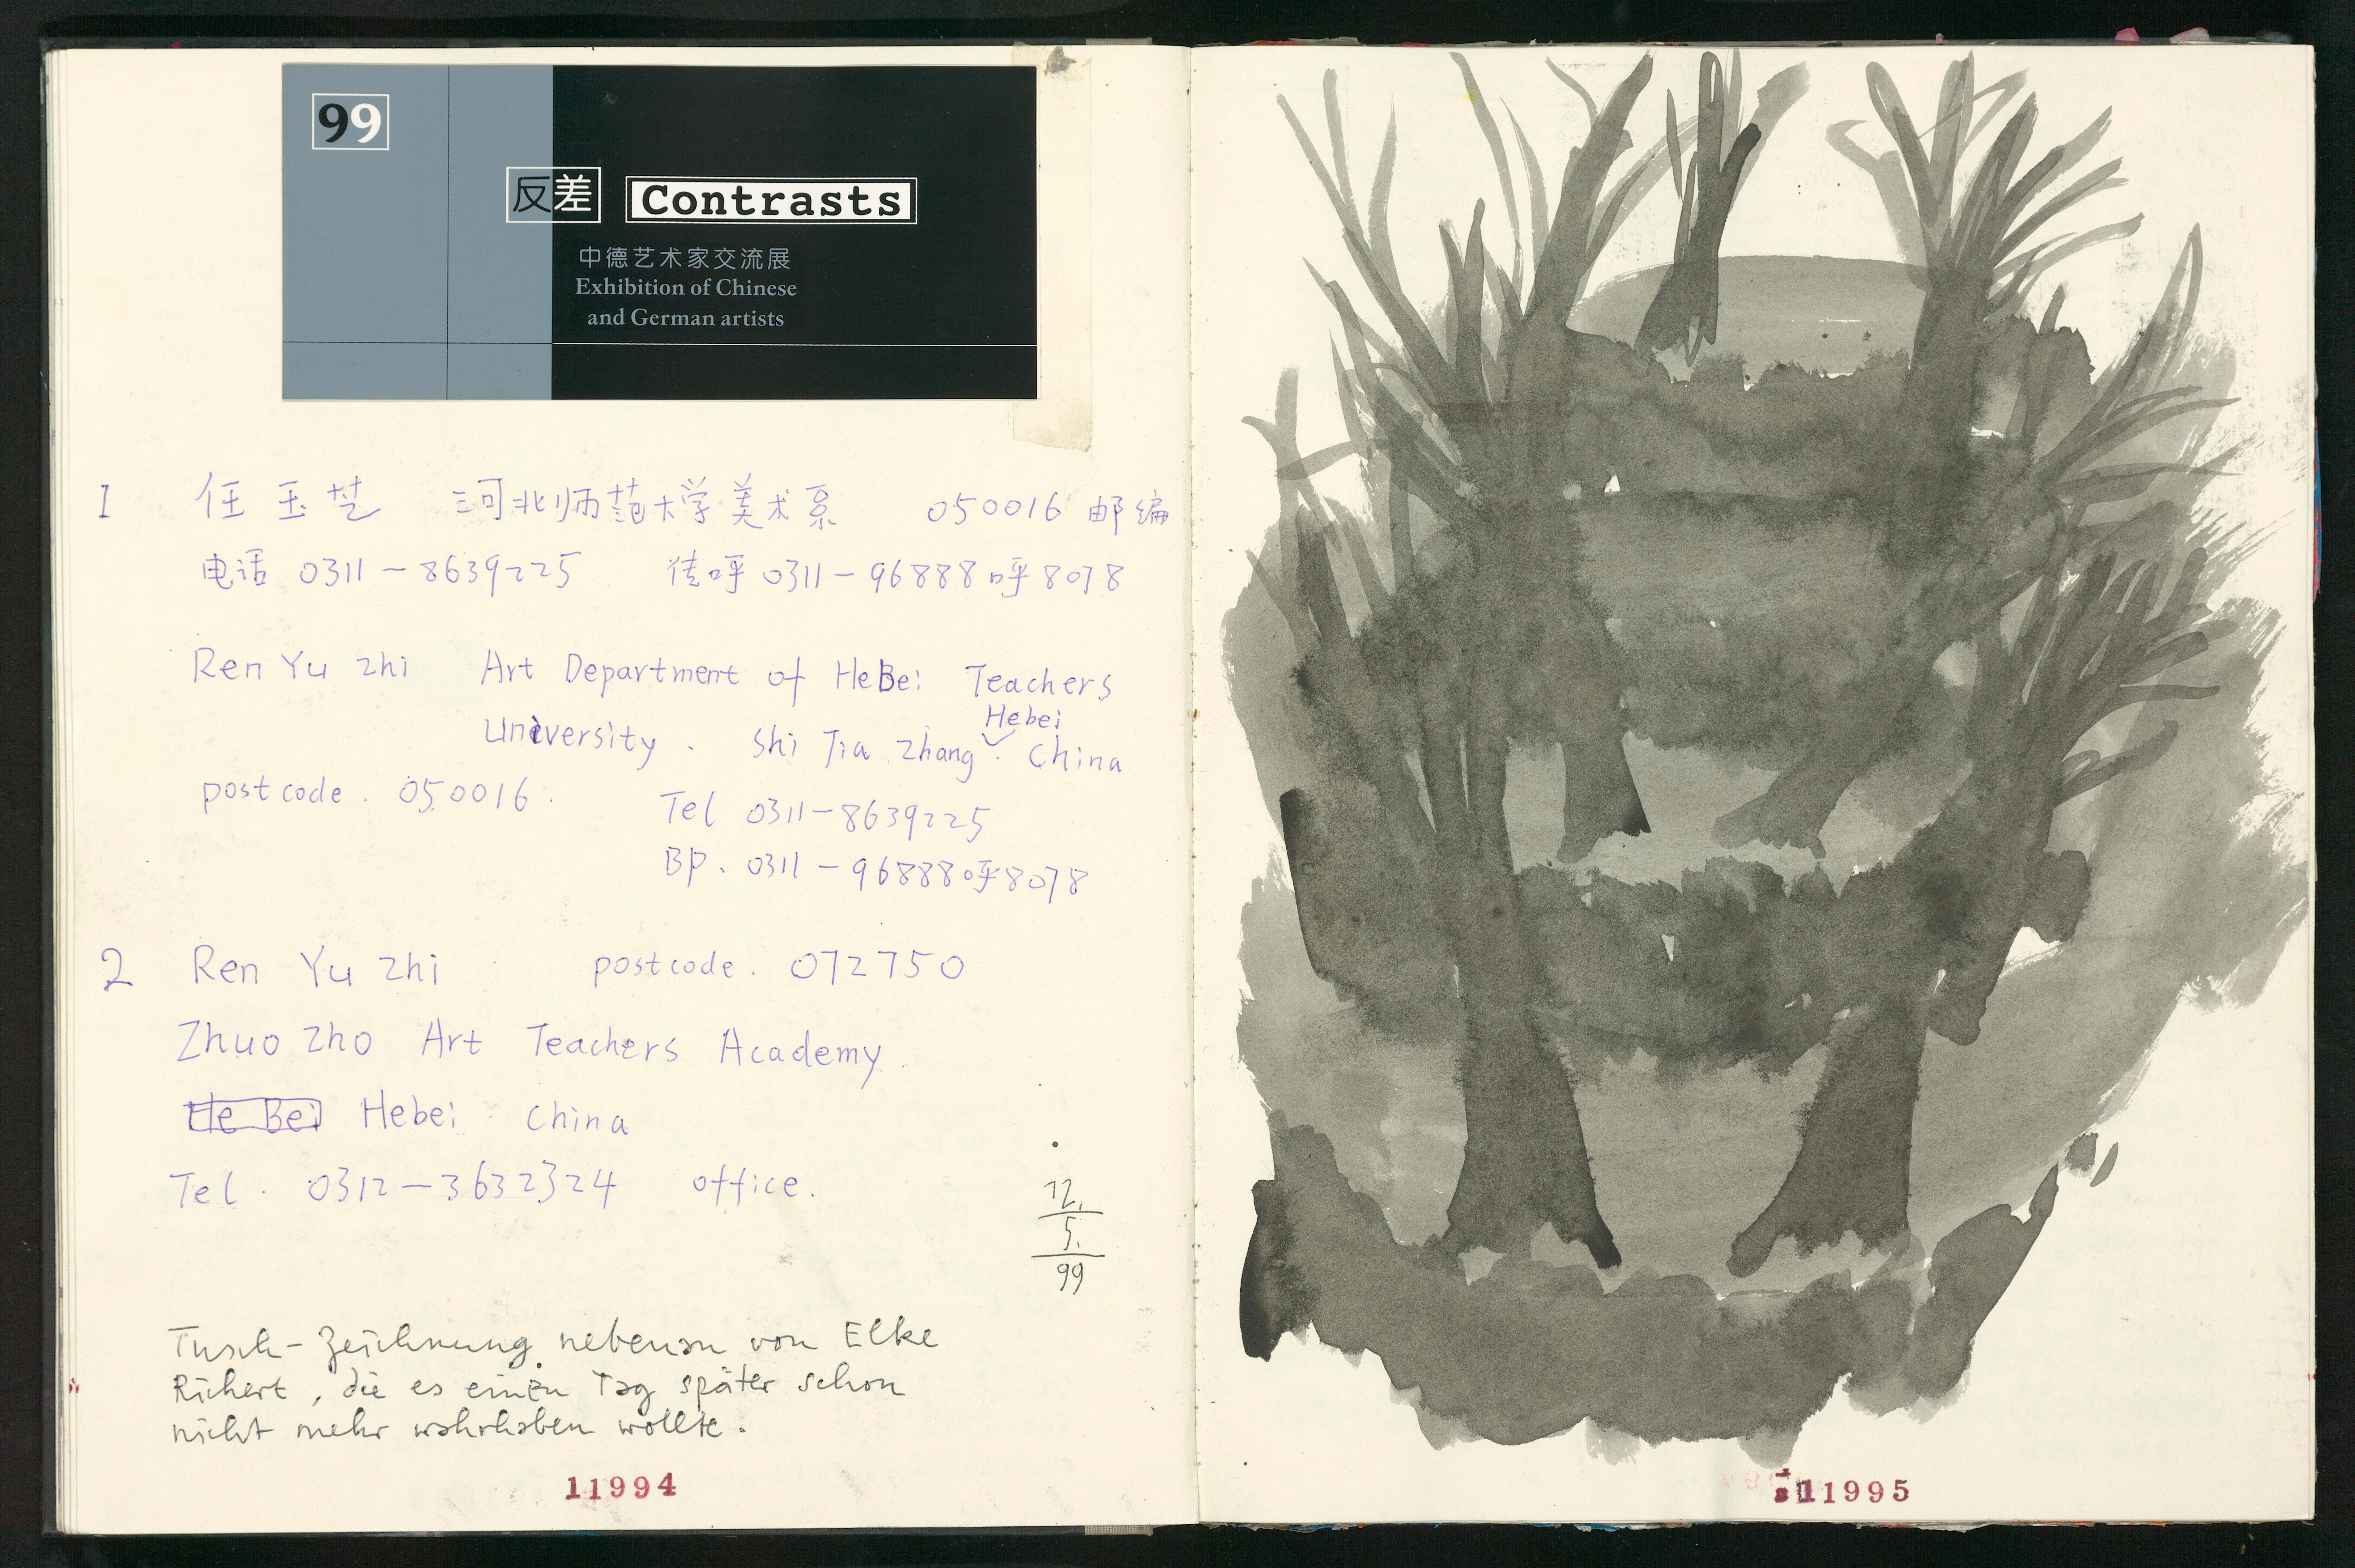 99
反差 Contrasts
中德艺术家交流展
Exhibition of Chinese
and German artists
1 任玉芝 河北师范大学美术系 050016 邮编
电话 0311-8639225 传呼 0311-96888呼8078
Ren Yu zhi Art Department of HeBei Teachers
University . Shi Jia Zhang Hebei . China
postcode . 050016 .
Tel 0311-8639225
BP. 0311-96888呼8078
2 Ren Yu zhi postcode . 072750
Zhuo zho Art Teachers Academy
He Bei Hebei China
Tel . 0312-3632324 office.
12.
5.
99
Tusch-Zeichnung nebenan von Elke
Richert, die es einen Tag später schon
nicht mehr wahrhaben wollte.
11994
11995